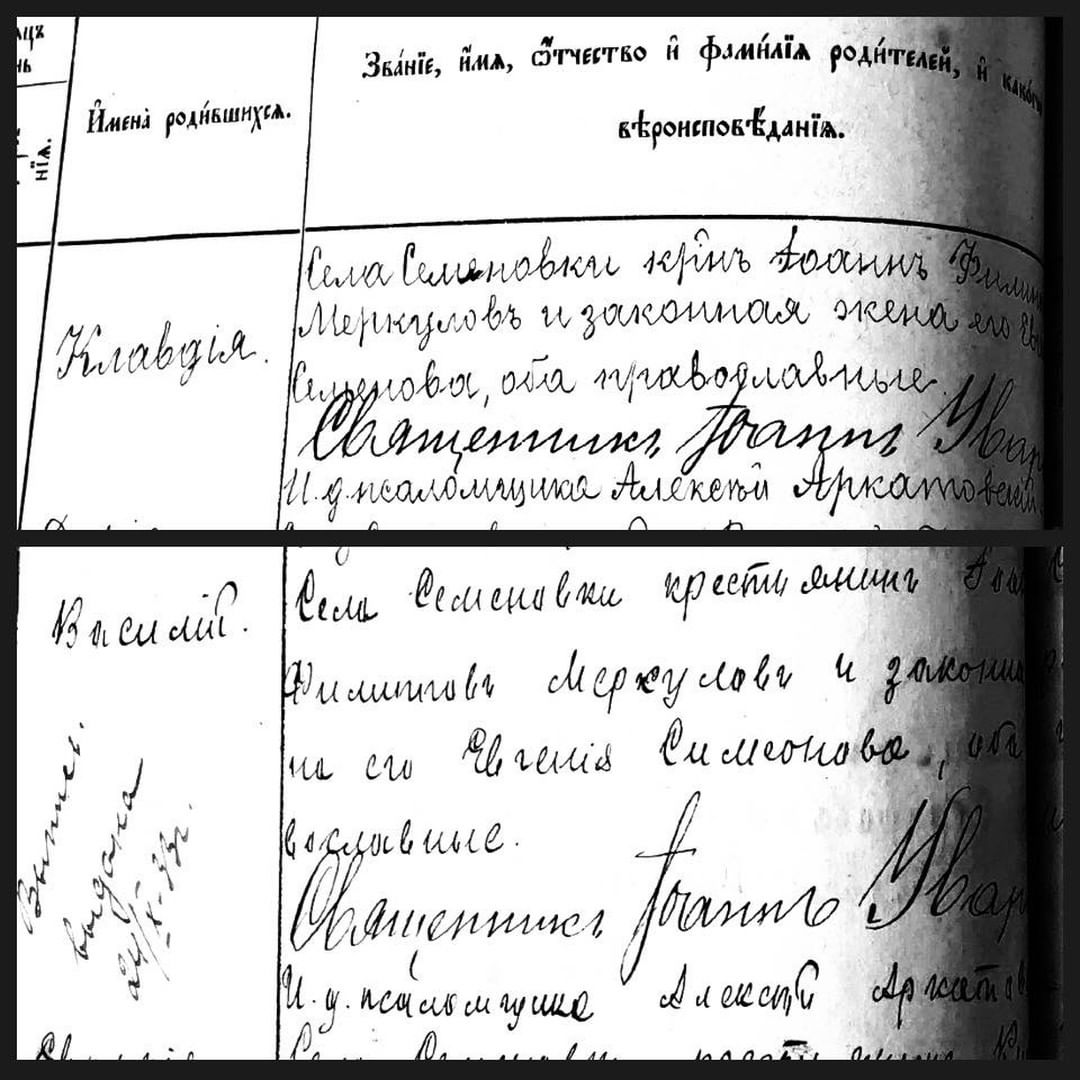 Имена̀ роди́вшихсѧ.
Зва́нїе, и҆́мѧ, ѻ҆́тчество и҆ фами́лїѧ роди́телей, и҆ како́гѡ
вѣроисповѣ́данїѧ.
Клавдія.
Села Семеновки кр҃інъ Іоаннъ Филип
Меркуловъ и законная жена его Ев
Семенова, оба православные.
Священникъ Іоаннъ Увар
И. д. псаломщика Алексѣй Аркатовскій
Василій.
Села Семеновки крестьянинъ Іоа
Филипповъ Меркуловъ и законна
на его Евгенія Симеонова, оба
вославные.
Священникъ Іоаннъ Увар
И. д. псаломщика Алексѣй Аркатов
Выпись
выдана
24/X-33г.